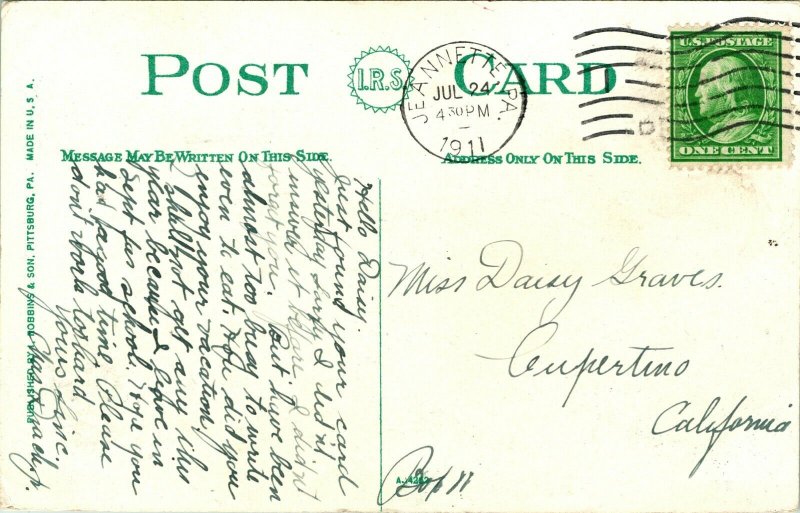 POST CARD
I.R.S.
JEANNETTE, PA.
JUL 24
4 30 PM
1911
U.S. POSTAGE
ONE CENT
MESSAGE MAY BE WRITTEN ON THIS SIDE.
ADDRESS ONLY ON THIS SIDE.
MADE IN U. S. A.
& SON, PITTSBURG, PA.
Hello Daisy.
Just found your card
yesterday. Sorry I didn't
it before. I didn't
forget you. But have been
almost too busy to write
even to eat. Hope did you
enjoy your vacation,
I shall not get any this
year because I leave in
Sept for school. Hope you
had a good time Please
dont work too hard
Yours Sinc.
Miss Daisy Graves.
Cupertino
California
Box 11